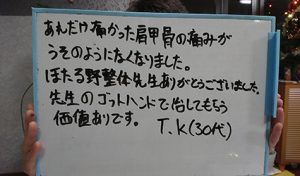 あんだけ痛かった肩甲骨の痛みが
うそのようになくなりました。
ほたる野整体先生ありがとうございました。
先生のゴットハンドで治してもらう
価値ありです。 T.K(30代)